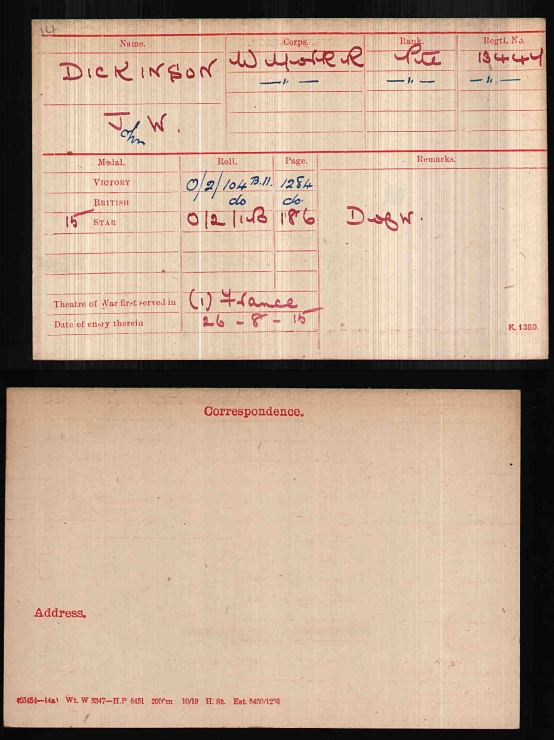 14
Name. Corps. Rank. Regtl. No.
DICKINSON W York R Pte 13444
—"— —"— —"—
John W.
Medal. Roll. Page. Remarks.
VICTORY O/2/104 B.11. 1284
BRITISH do do.
15 STAR O/2/11B 186 D of W.
Theatre of War first served in (1) France
Date of entry therein 26 - 8 - 15
K. 1380.
Correspondence.
Address.
Wt. W 5347—H.P 6451 2000m 10/19 H. St.